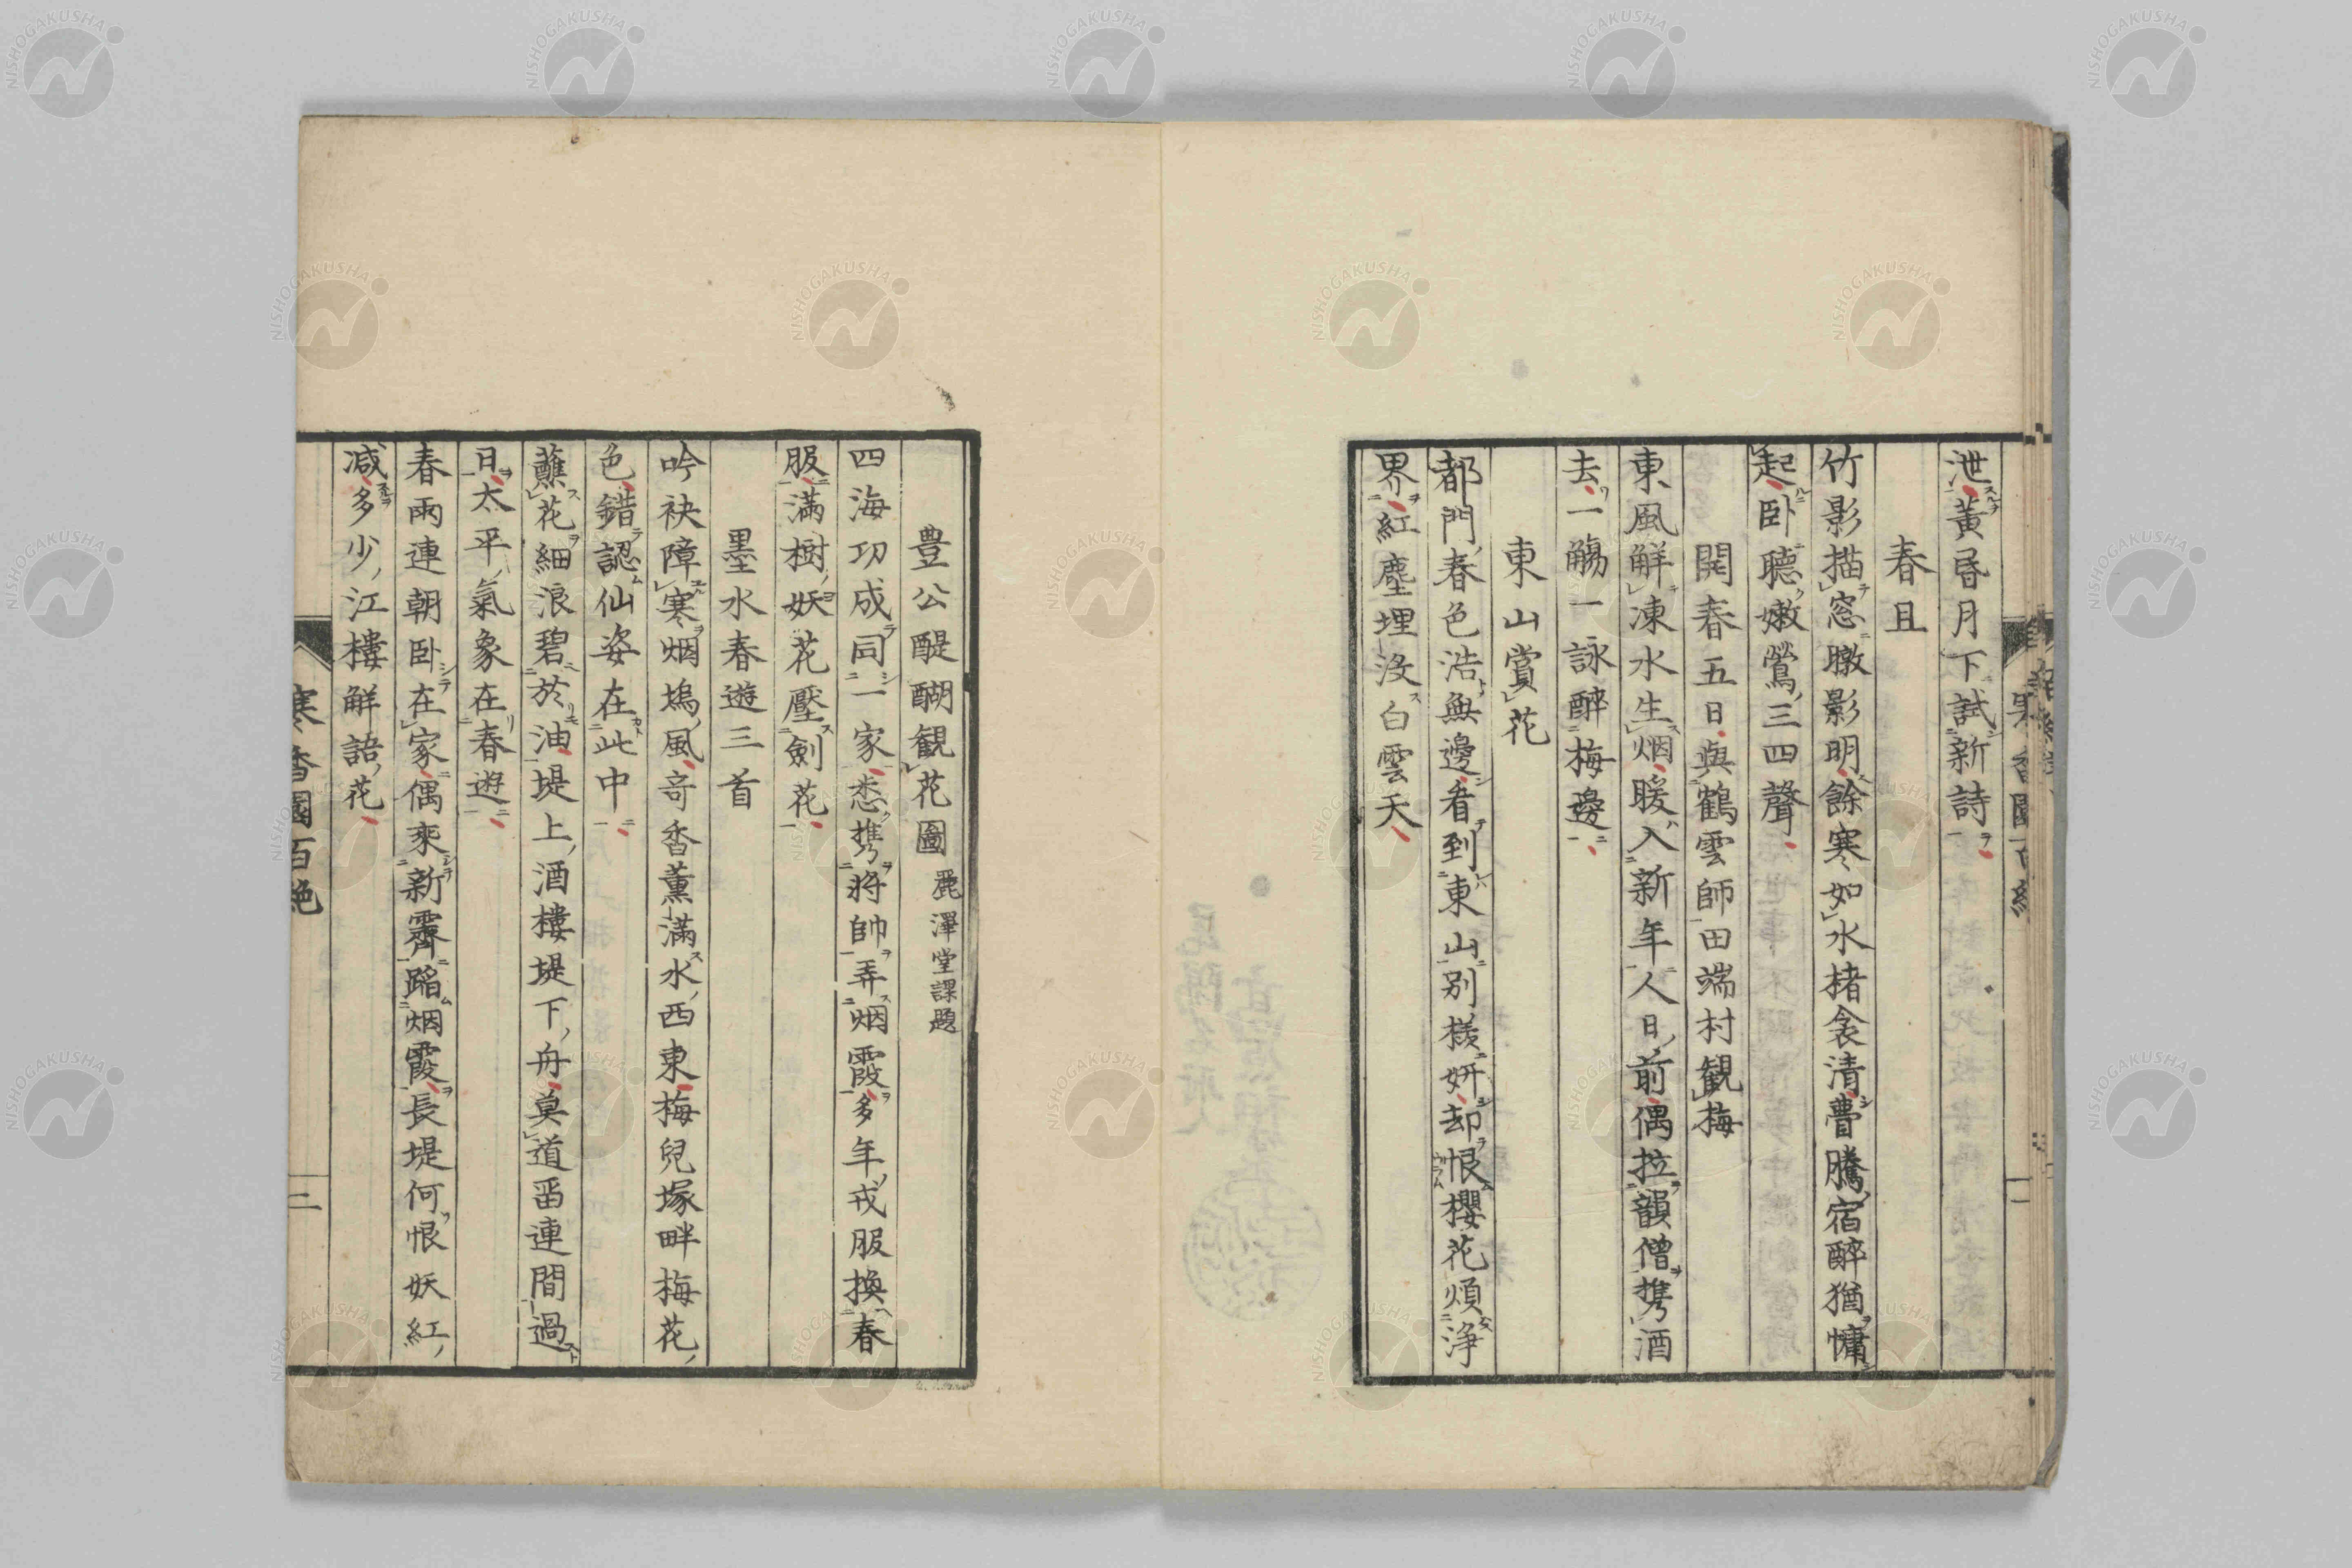 泄黄昏月下試新詩
春且
竹影描窓暾影明餘寒如水楮衾清瞢騰宿醉猶慵
起臥聽嫩鶯三四聲
開春五日與鶴雲師田端村観梅
東風解凍水生烟暖入新年人日前偶拉韻僧携酒
去一觴一詠醉梅邊
東山賞花
都門春色浩無邊看到東山別様妍却恨櫻花煩淨
界紅塵埋没白雲天
豊公醍醐観花圖 麗澤堂課題
四海功成同一家悉携將帥弄烟霞多年戎服換春
服滿樹妖花壓劍花
墨水春遊三首
吟袂障寒烟塢風奇香薫滿水西東梅兒塚畔梅花
色錯認仙姿在此中
蘸花細浪碧於油堤上酒樓堤下舟莫道畱連間過
日太平氣象在春遊
春雨連朝臥在家偶乘新霽踏烟霞長堤何恨妖紅
减多少江樓解語花
寒香園百絶
二
NISHOGAKUSHA